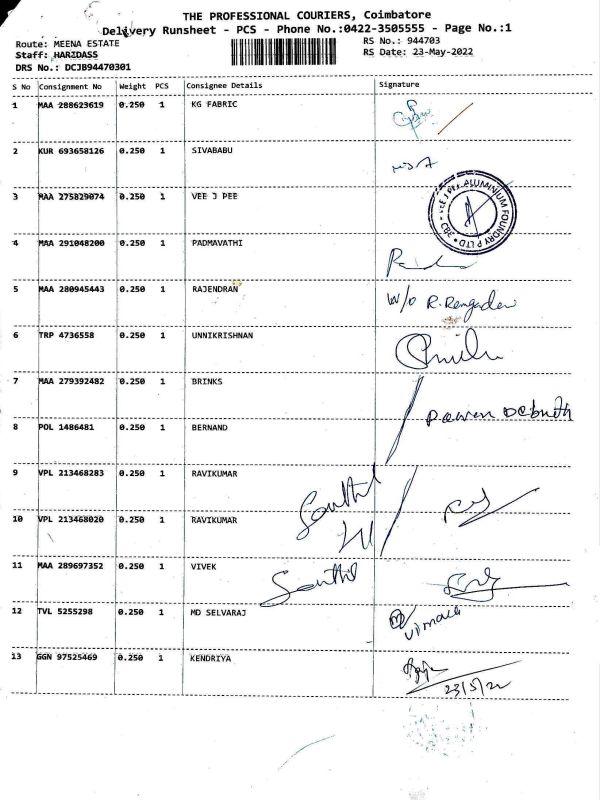 THE PROFESSIONAL COURIERS, Coimbatore
Delivery Runsheet - PCS - Phone No.:0422-3505555 - Page No.:1
Route: MEENA ESTATE
RS No.: 944703
Staff: HARIDASS
RS Date: 23-May-2022
DRS No.: DCJB94470301
S No Consignment No Weight PCS Consignee Details Signature
1 MAA 288623619 0.250 1 KG FABRIC
2 KUR 693658126 0.250 1 SIVABABU
3 MAA 275829074 0.250 1 VEE J PEE
VEE J PEE ALUMINIUM FOUNDRY P LTD • CBE •
4 MAA 291048200 0.250 1 PADMAVATHI
5 MAA 280945443 0.250 1 RAJENDRAN W/o R. Rengadev
6 TRP 4736558 0.250 1 UNNIKRISHNAN
7 MAA 279392482 0.250 1 BRINKS
8 POL 1486481 0.250 1 BERNAND
9 VPL 213468283 0.250 1 RAVIKUMAR
10 VPL 213468020 0.250 1 RAVIKUMAR
11 MAA 289697352 0.250 1 VIVEK
12 TVL 5255298 0.250 1 MD SELVARAJ Vimala
13 GGN 97525469 0.250 1 KENDRIYA
23/5/22